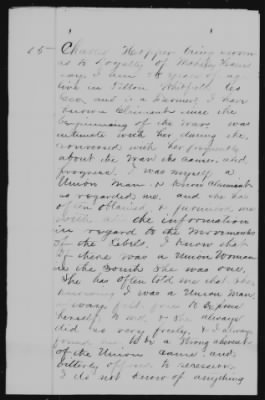 15 - Charles Hopper being sworn
as to Loyalty of
says I am years of age
live in Tilton Whitfield Co
Geo and is a Farmer I have
known Claimant since the
beginning of the war & was
intimate with her during the
conversed with her frequently
about the War its causes and
progress. I was myself a
Union man & know Claimant
so regarded me. and she has
often obtained & furnished me
with all the information
in regard to the movements
of the Rebels. I know that
if there was a Union Woman
in the South she was one.
She has often told me that
knowing I was a Union Man
always felt free to express
herself to me & she always
did so very freely, & I always
found her to be a strong advocate
of the Union cause and
bitterly opposed to secession.
I do not know of anything